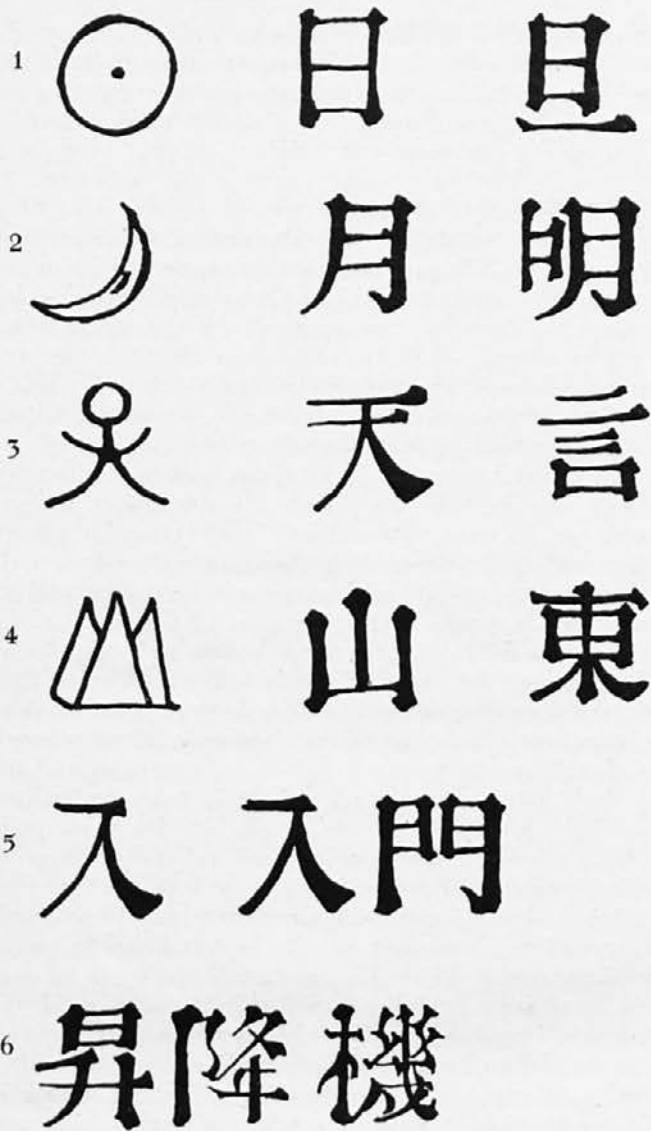 1 日 旦
2 月 明
3 天 言
4 山 東
5 入 入門
6 昇降機